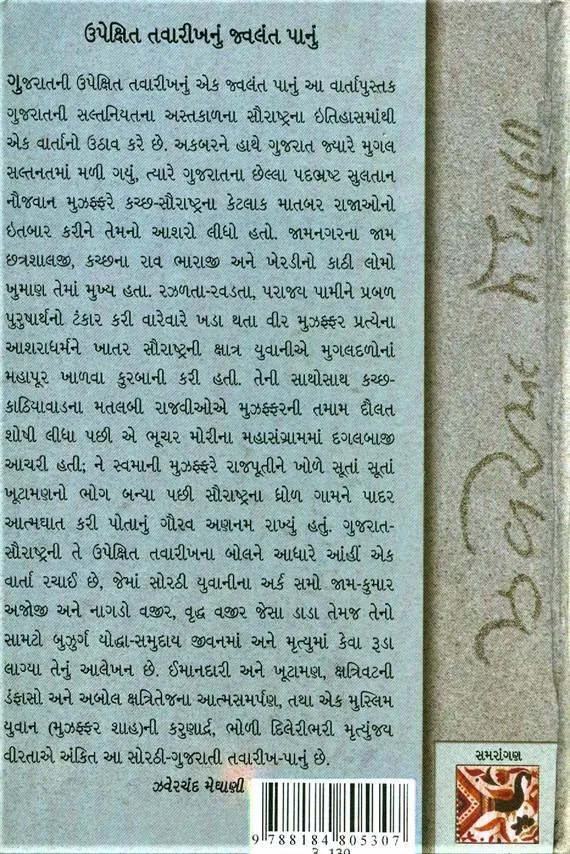 ઉપેક્ષિત તવારીખનું જ્વલંત પાનું
ગુજરાતની ઉપેક્ષિત તવારીખનું એક જ્વલંત પાનું આ વાર્તાપુસ્તક
ગુજરાતની સલ્તનિયતના અસ્તકાળના સૌરાષ્ટ્રના ઇતિહાસમાંથી
એક વાર્તાનો ઉઠાવ કરે છે. અકબરને હાથે ગુજરાત જ્યારે મુગલ
સલ્તનતમાં મળી ગયું, ત્યારે ગુજરાતના છેલ્લા પદભ્રષ્ટ સુલતાન
નૌજવાન મુઝફ્ફરે કચ્છ-સૌરાષ્ટ્રના કેટલાક માતબર રાજાઓનો
ઇતબાર કરીને તેમનો આશરો લીધો હતો. જામનગરના જામ
છત્રશાલજી, કચ્છના રાવ ભારાજી અને ખેરડીનો કાઠી લોમો
ખુમાણ તેમાં મુખ્ય હતા. રઝળતા-રવડતા, પરાજ્ય પામીને પ્રબળ
પુરુષાર્થનો ટંકાર કરી વારેવારે ખડા થતા વીર મુઝફ્ફર પ્રત્યેના
આશરાધર્મને ખાતર સૌરાષ્ટ્રની ક્ષાત્ર યુવાનીએ મુગલદળોનાં
મહાપૂર ખાળવા કુરબાની કરી હતી. તેની સાથોસાથ કચ્છ-
કાઠિયાવાડના મતલબી રાજવીઓએ મુઝફ્ફરની તમામ દૌલત
શોષી લીધા પછી એ ભૂચર મોરીના મહાસંગ્રામમાં દગલબાજી
આચરી હતી; ને સ્વમાની મુઝફ્ફરે રાજપૂતીને ખોળે સૂતાં સૂતાં
ખૂટામણનો ભોગ બન્યા પછી સૌરાષ્ટ્રના ધ્રોળ ગામને પાદર
આત્મઘાત કરી પોતાનું ગૌરવ અણનમ રાખ્યું હતું. ગુજરાત-
સૌરાષ્ટ્રની તે ઉપેક્ષિત તવારીખના બોલને આધારે આંહીં એક
વાર્તા રચાઈ છે, જેમાં સોરઠી યુવાનીના અર્ક સમો જામ-કુમાર
અજોજી અને નાગડો વજીર, વૃદ્ધ વજીર જેસા ડાડા તેમજ તેનો
સામટો બુઝુર્ગ યોદ્ધા-સમુદાય જીવનમાં અને મૃત્યુમાં કેવા રૂડા
લાગ્યા તેનું આલેખન છે. ઈમાનદારી અને ખૂટામણ, ક્ષત્રિવટની
ડંફાસો અને અબોલ ક્ષત્રિતેજના આત્મસમર્પણ, તથા એક મુસ્લિમ
યુવાન (મુઝફ્ફર શાહ)ની કરુણાર્દ્ર, ભોળી દિલેરીભરી મૃત્યુંજય
વીરતાએ અંકિત આ સોરઠી-ગુજરાતી તવારીખ-પાનું છે.
ઝવેરચંદ મેઘાણી
ઝવેરચંદ મેઘાણી
સમરાંગણ
9 788184 805307